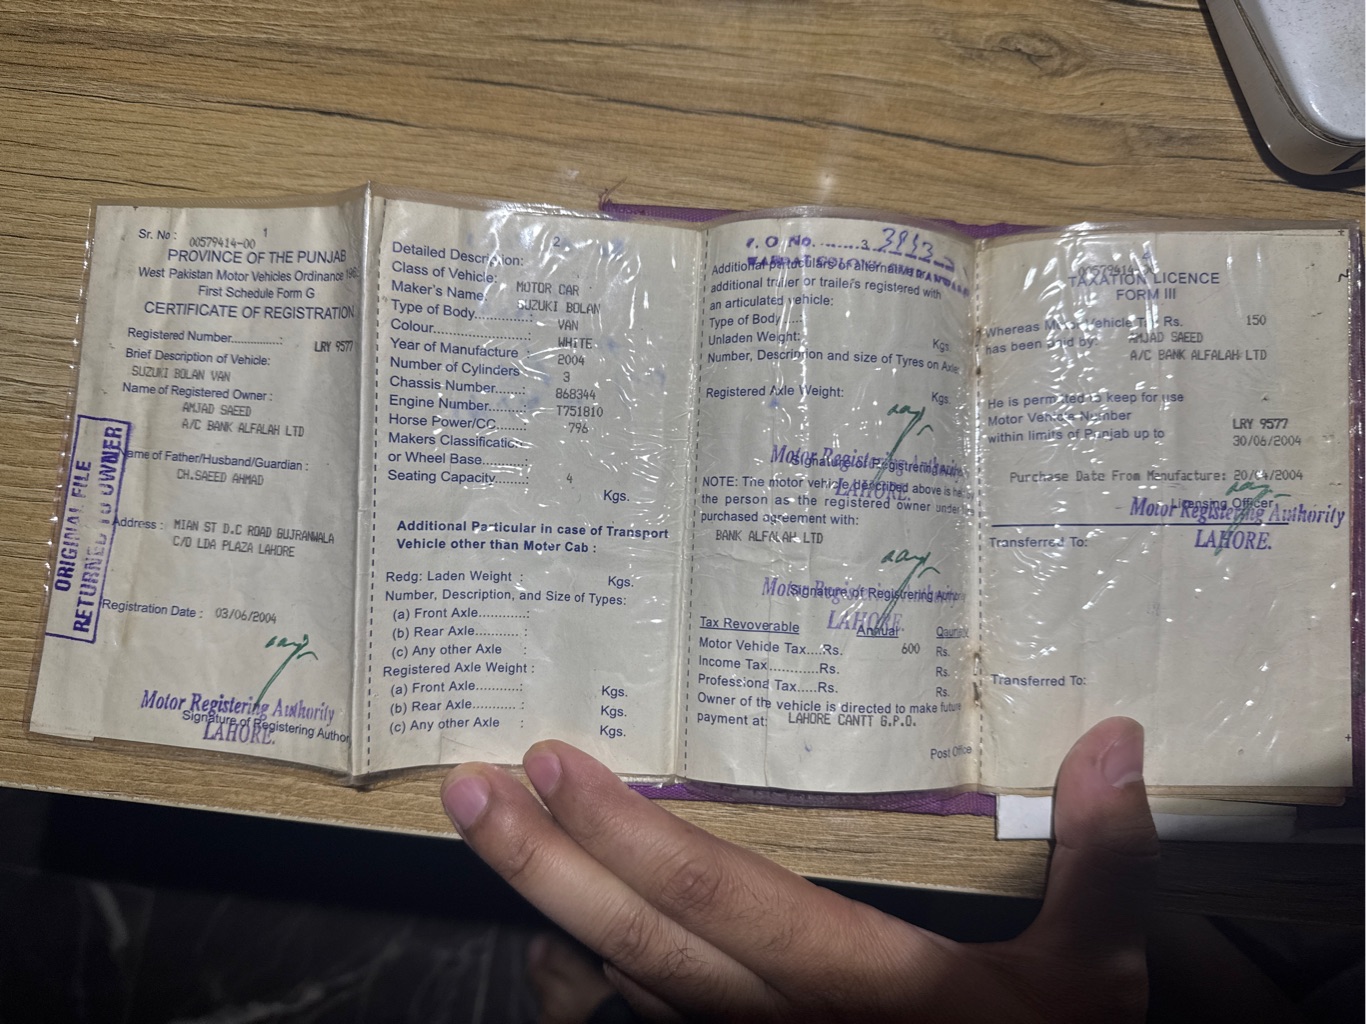 1
Sr. No : 00579414-00
PROVINCE OF THE PUNJAB
West Pakistan Motor Vehicles Ordinance 196
First Schedule Form G
CERTIFICATE OF REGISTRATION
Registered Number............. LRY 9577
Brief Description of Vehicle:
SUZUKI BOLAN VAN
Name of Registered Owner :
AMJAD SAEED
A/C BANK ALFALAH LTD
ame of Father/Husband/Guardian :
CH.SAEED AHMAD
Address : MIAN ST D.C ROAD GUJRANWALA
C/O LDA PLAZA LAHORE
Registration Date : 03/06/2004
Motor Registering Authority
Signature of Registering Author
LAHORE.
ORIGINAL FILE
RETURNED TO OWNER
2
Detailed Description:
Class of Vehicle: MOTOR CAR
Maker's Name: SUZUKI BOLAN
Type of Body....... VAN
Colour............. WHITE
Year of Manufacture : 2004
Number of Cylinders 3
Chassis Number....... 868344
Engine Number........ T751810
Horse Power/CC....... 796
Makers Classification
or Wheel Base..........:
Seating Capacity........: 4
Kgs.
Additional Particular in case of Transport
Vehicle other than Moter Cab :
Redg: Laden Weight : Kgs.
Number, Description, and Size of Types:
(a) Front Axle..........:
(b) Rear Axle.......... :
(c) Any other Axle :
Registered Axle Weight :
(a) Front Axle..........: Kgs.
(b) Rear Axle.......... : Kgs.
(c) Any other Axle : Kgs.
P. O No. ........3 3913
Additional particulars of alternative
additional trailer or trailers registered with
an articulated vehicle:
Type of Body....:
Unladen Weight: Kgs.
Number, Description and size of Tyres on Axle
Registered Axle Weight: Kgs.
Motor Registering Authority
Signature of Registrering Autho
LAHORE.
NOTE: The motor vehicle described above is he
the person as the registered owner under
purchased agreement with:
BANK ALFALAH LTD
Motor Registering Authority
Signature of Registrering Author
LAHORE.
Tax Revoverable Annual
Motor Vehide Tax....Rs. 600 Rs.
Income Tax............Rs. Rs.
Professional Tax.....Rs. Rs.
Owner of the vehicle is directed to make future
payment at: LAHORE CANTT G.P.O.
Post Office
4
TAXATION LICENCE
FORM III
Whereas Motor Vehicle Tax Rs. 150
has been paid by: AMJAD SAEED
A/C BANK ALFALAH LTD
He is permitted to keep for use
Motor Vehicle Number LRY 9577
within limits of Punjab up to 30/06/2004
Purchase Date From Menufacture: 20/04/2004
Licensing Officer
Motor Registering Authority
LAHORE.
Transferred To:
Transferred To: